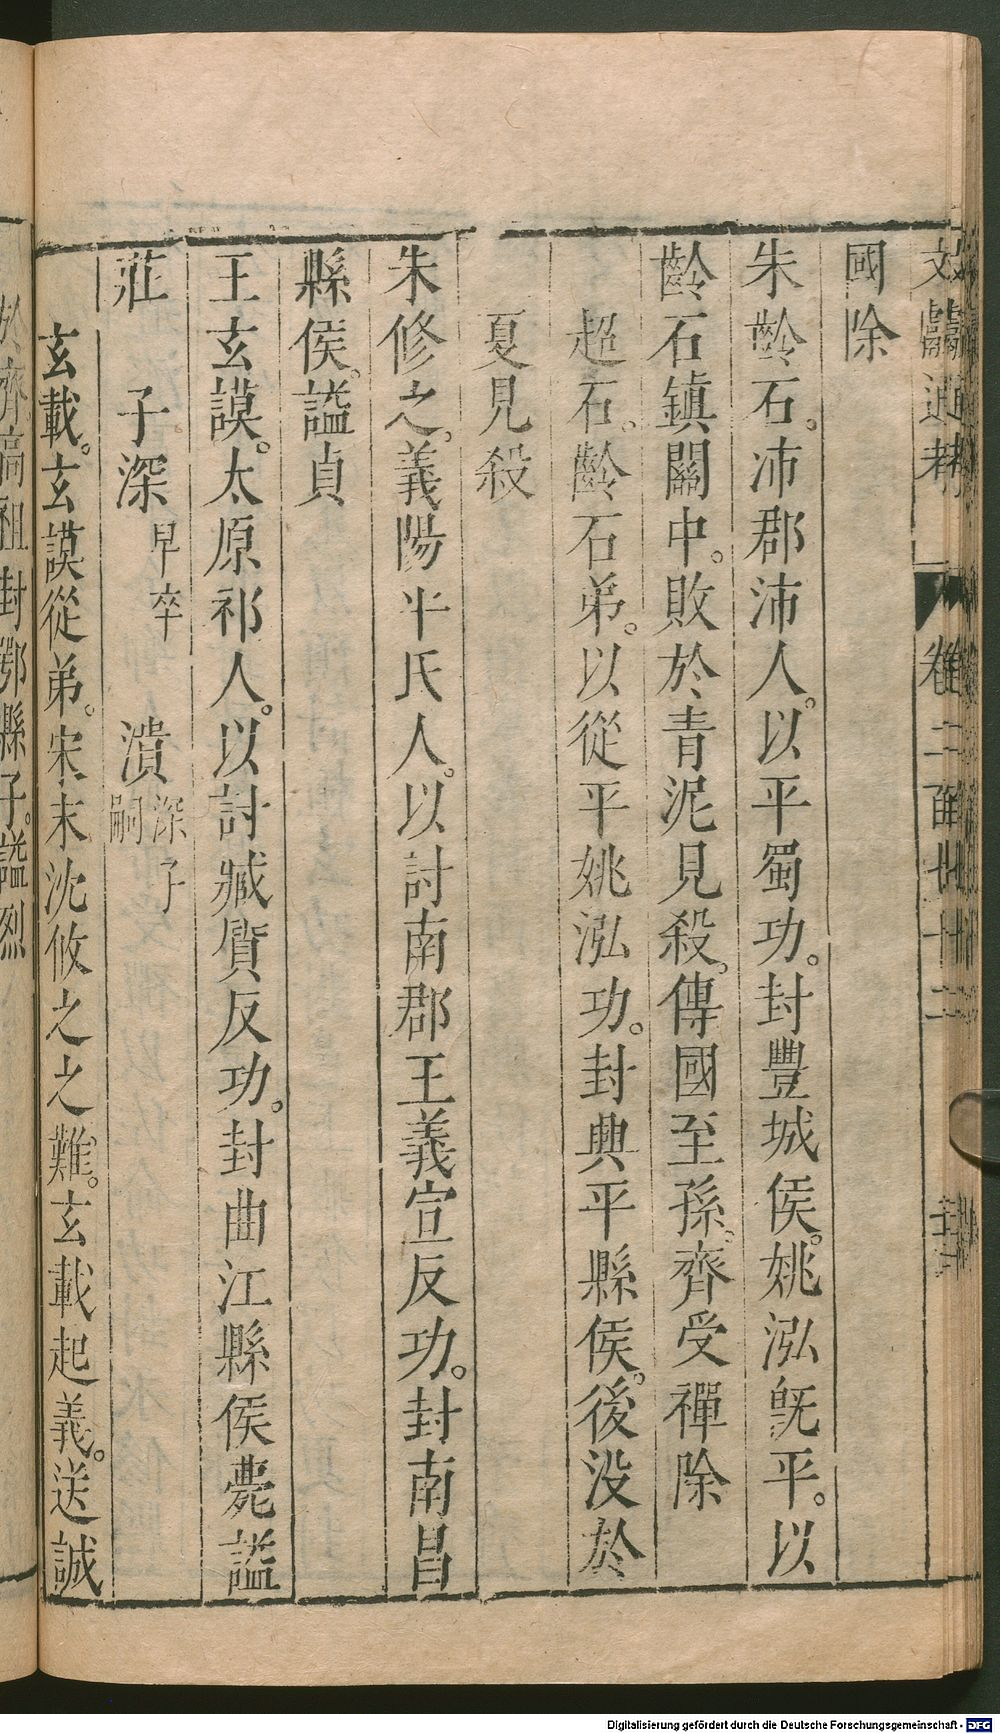 文獻通考　卷二百七十二
國除
朱齡石。沛郡沛人。以平蜀功。封豐城侯。姚泓旣平。以
齡石鎮關中。敗於青泥見殺。傳國至孫。齊受禪除
超石。齡石弟。以從平姚泓功。封興平縣侯。後没於
夏見殺
朱修之。義陽平氏人。以討南郡王義宣反功。封南昌
縣侯。謚貞
王玄謨。太原祁人。以討臧質反功。封曲江縣侯薨謚
莊　子深早卒　瀆深子嗣
玄載。玄謨從弟。宋末沈攸之之難。玄載起義。送誠
於齊高祖封鄂縣子。謚烈
Digitalisierung gefördert durch die Deutsche Forschungsgemeinschaft - DFG